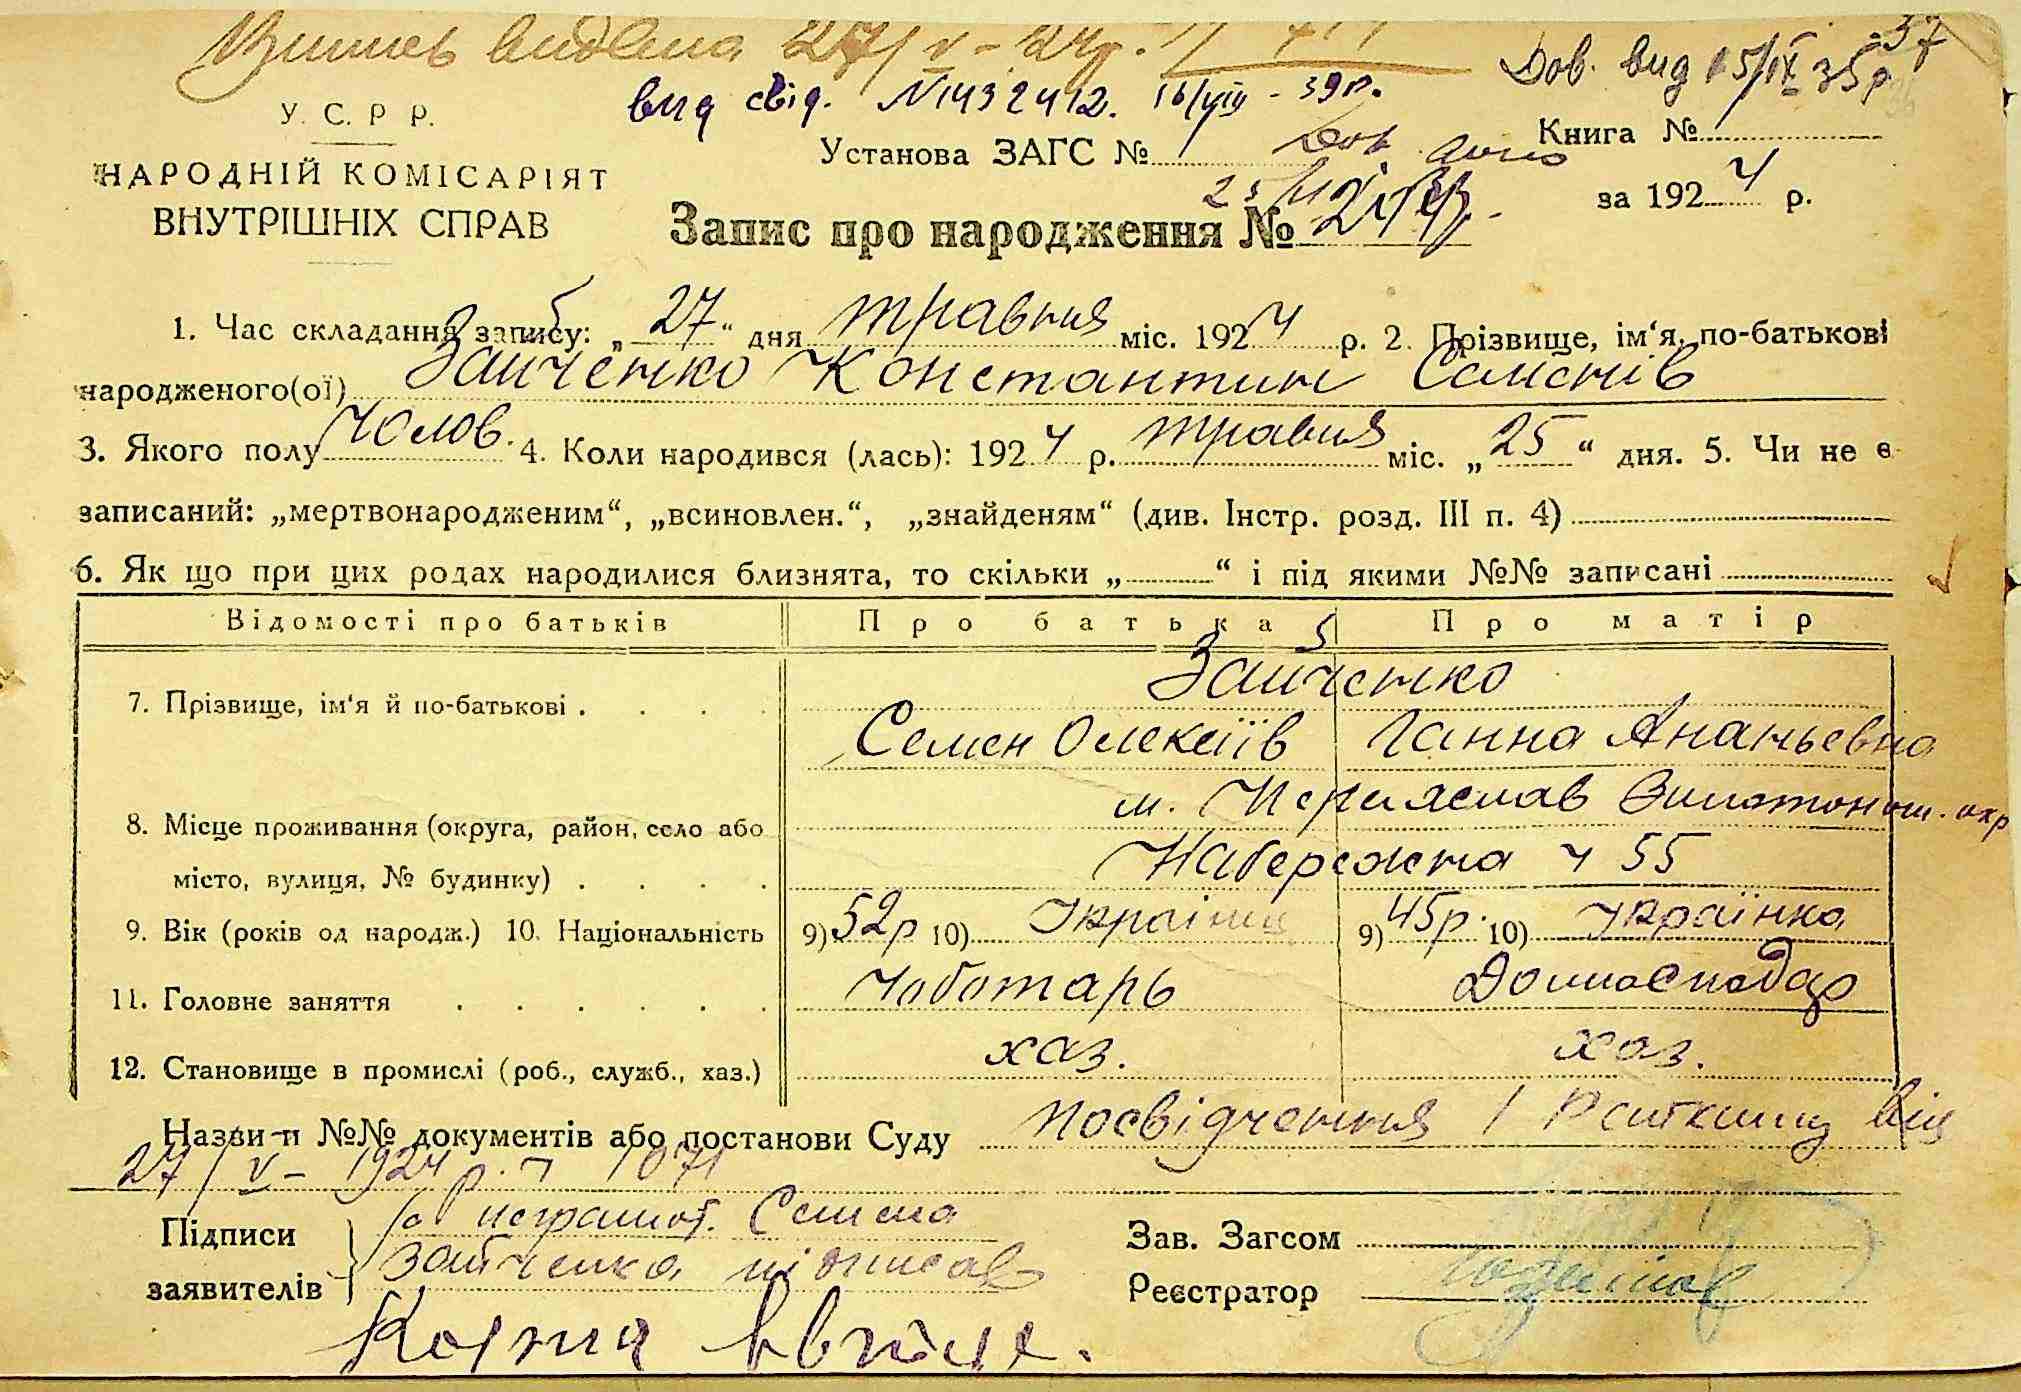 Випись видана 27/V-24р.
Дов. вид 15/IX 35р. 37
вид свід. №143242. 16/VIII - 39р.
У. С. Р. Р.
Установа ЗАГС №
Книга №
НАРОДНІЙ КОМІСАРІЯТ
за 1924 р.
ВНУТРІШНІХ СПРАВ
Запис про народження №
1. Час складання запису: „27“ дня травня міс. 1924 р. 2. Прізвище, ім‘я, по-батькові
народженого(ої) Зайченко Константин Семенів
3. Якого полу чолов. 4. Коли народився (лась): 1924 р. травня міс. „25“ дня. 5. Чи не є
записаний: „мертвонародженим“, „всиновлен.“, „знайденям“ (див. Інстр. розд. III п. 4)
6. Як що при цих родах народилися близнята, то скільки „ “ і під якими №№ записані
Відомості про батьків Про батька Про матір
Зайченко
7. Прізвище, ім‘я й по-батькові . . . .
Семен Олексіїв Ганна Ананьевна
м. Переяслав Золотонош. окр
8. Місце проживання (округа, район, село або
місто, вулиця, № будинку) . . . . Набережна ч 55
9. Вік (років од народж.) 10. Національність 9) 52р 10) Українец 9) 45р. 10) Українка
11. Головне заняття . . . . . . Чоботарь Домогосподар
12. Становище в промислі (роб., служб., хаз.) хаз. хаз.
Назви й №№ документів або постанови Суду посвідчення / від
27/V-1924 р. ч 1071
Підписи за неграмот. Семена
заявителів Зайченка підписав
Зав. Загсом
Реєстратор